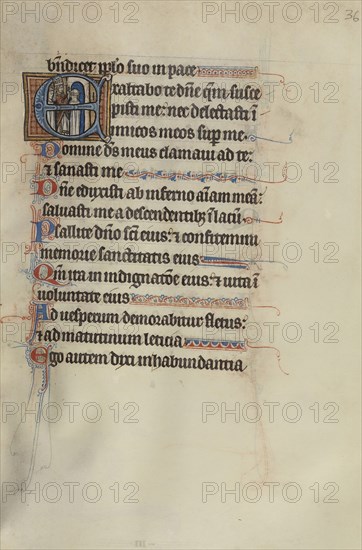 36
bn̄dicet pplo suo in pace
Exaltabo te dn̄e qm̄ susce
pisti me: nec delectasti ī
imicos meos sup me
Domine ds̄ meus clamaui ad te:
& sanasti me
Dn̄e eduxisti ab inferno aīam meā:
saluasti me a descendentibȝ ī lacū
Psallite dn̄o sc̄i eius: & confitemini
memorie sanctitatis eius
Qm̄ ira in indignatōe eius: & uita ī
uoluntate eius
Ad uesperum demorabitur fletus:
& ad matutinum leticia
Ego autem dixi in habundantia
PHOTO 12